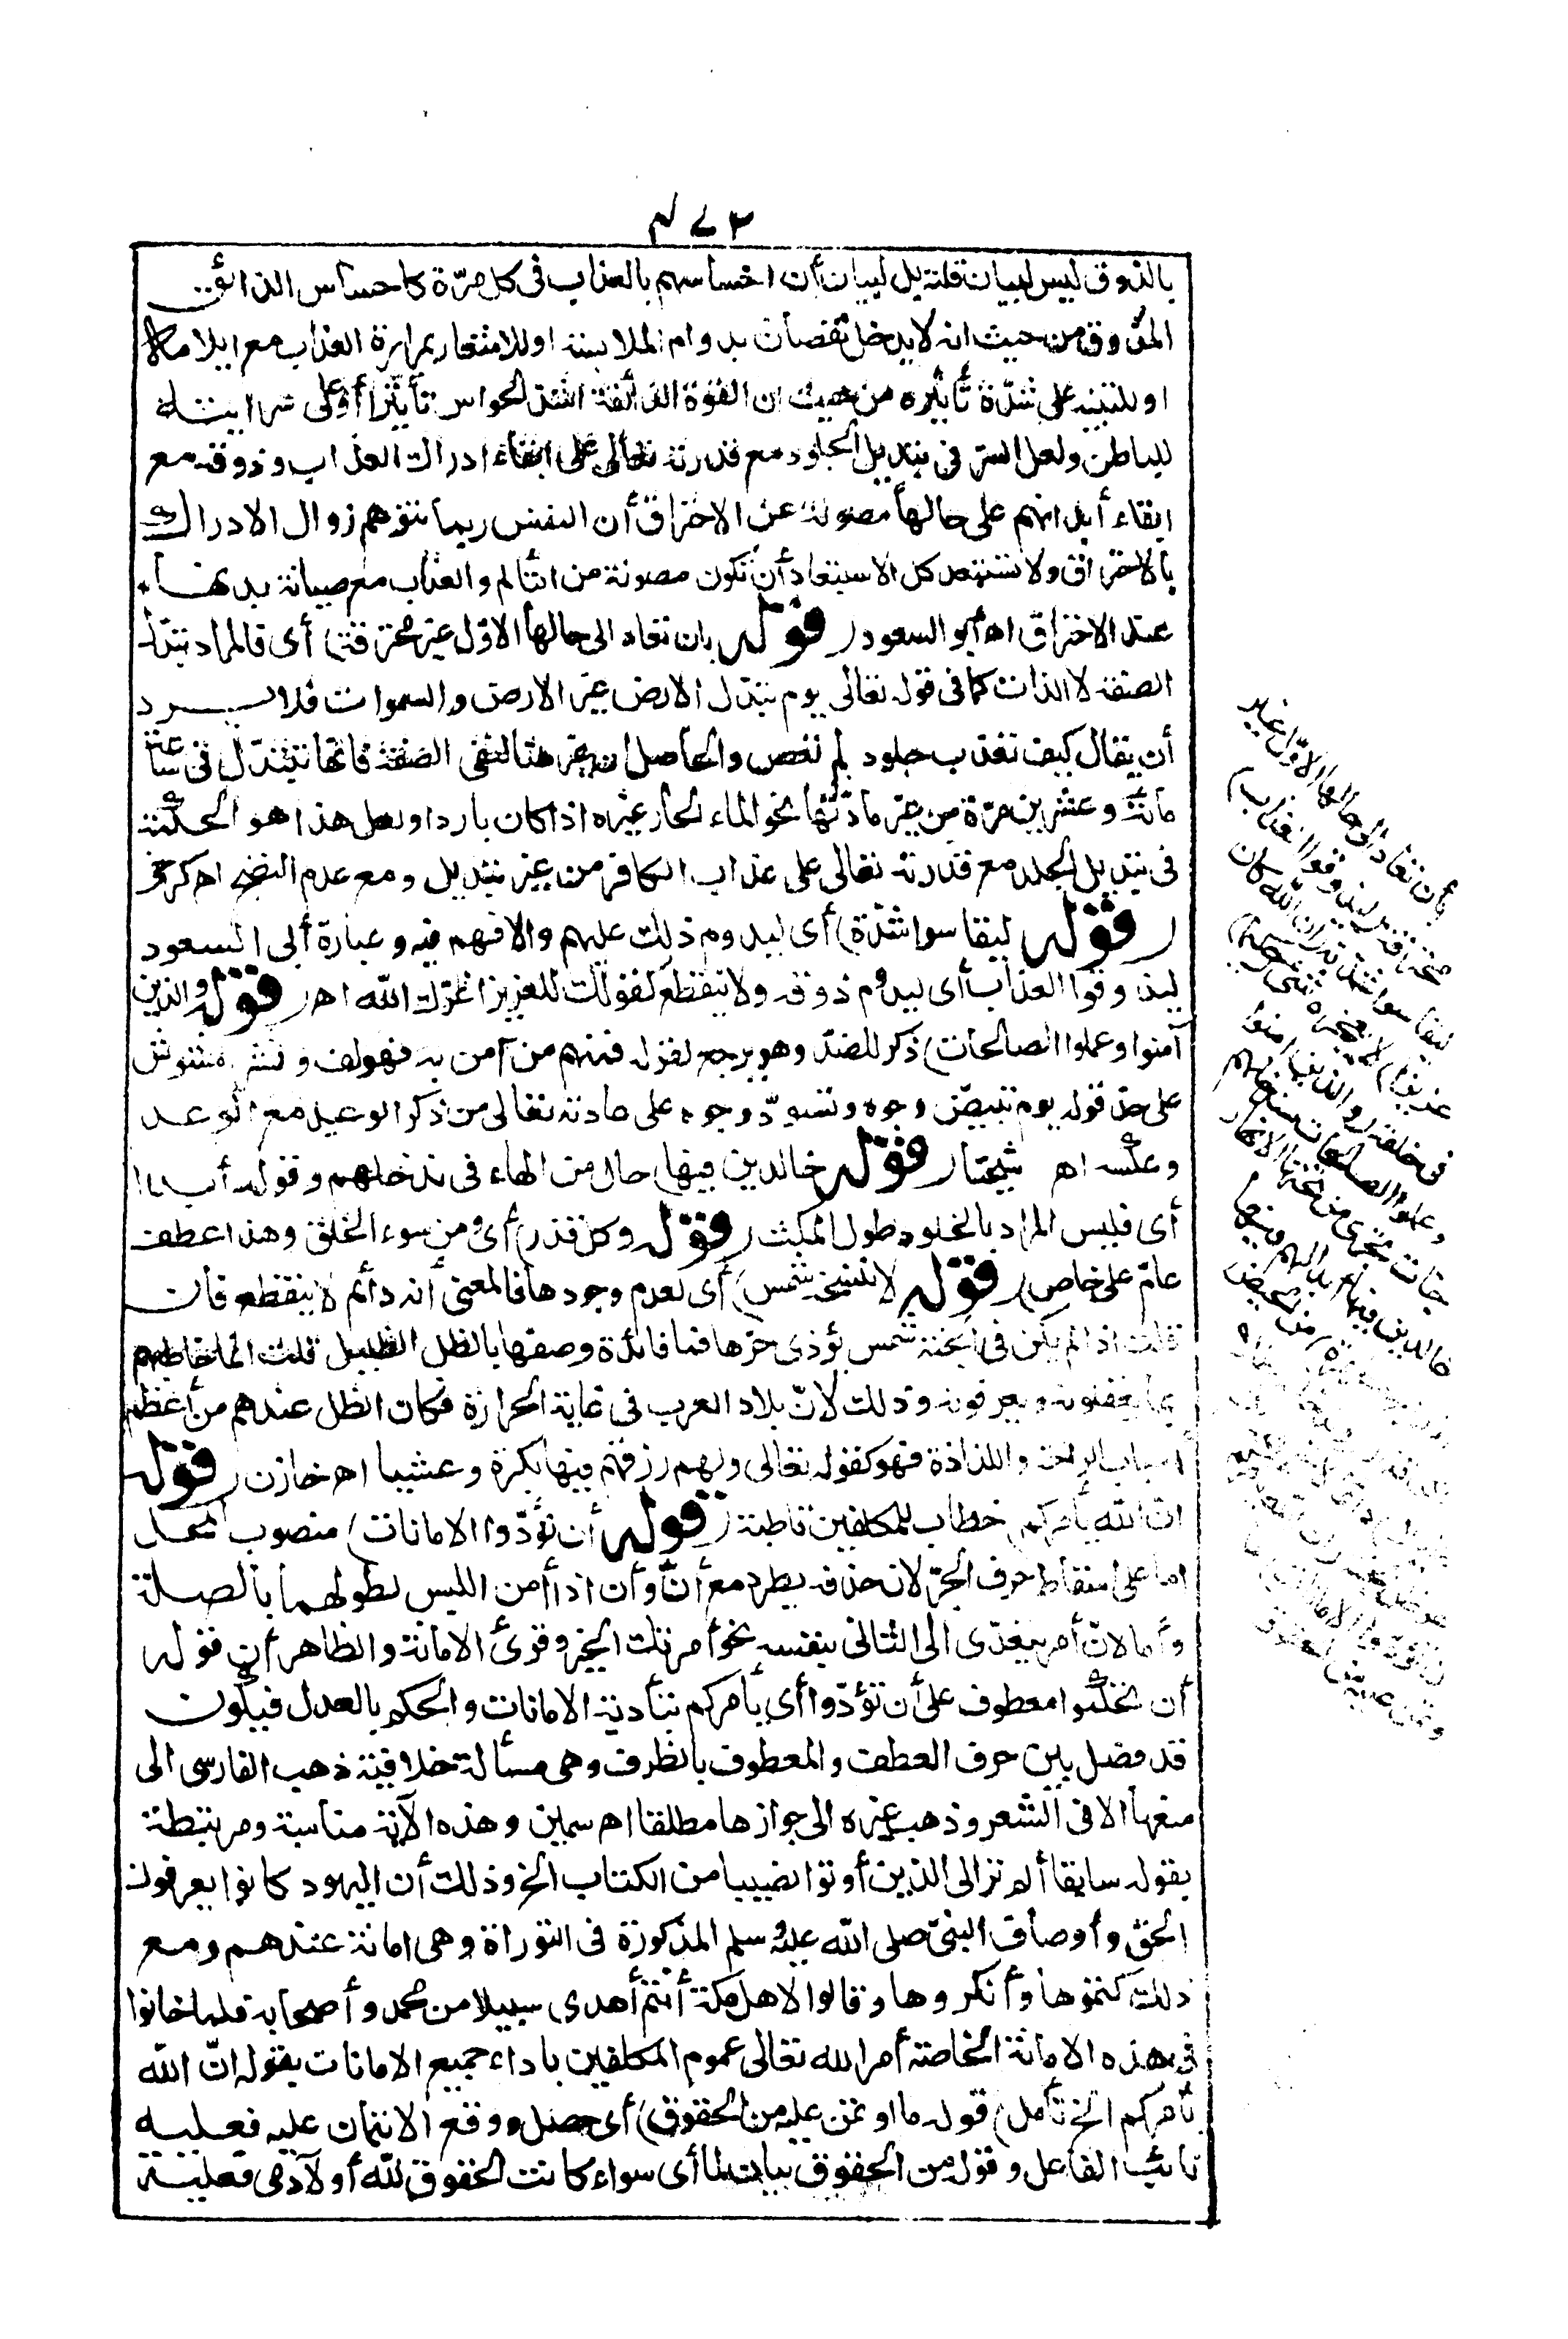 بالذوق ليس لبيان قلته بل لبيان أن احساسهم بالعذاب فى كل مرّة كاحساس الذائق
المذوق من حيث انه لا يدخل نقصان بدوام الملابسة او للاشعار بمرارة العذاب مع ايلامه
او للتنبيه على شدّة تأثيره من حيث ان القوّة الذائقة اشدّ الحواس تأثيرا أو على سرايته
للباطن ولعل السرّ فى تبديل الجلود مع قدرته تعالى على ابقاء ادراك العذاب وذوقه مع
ابقاء أبدانهم على حالها مصونة عن الاحتراق أن النفس ربما تتوهم زوال الادراك
بالاحتراق ولا تستبعد كل الاستبعاد أن تكون مصونة من التألم والعذاب مع صيانة بدنها
عند الاحتراق اه أبو السعود (قوله بان تعاد الى حالها الاوّل غير محترقة) أى فالمراد تبدّل
الصفة لا الذات كما فى قوله تعالى يوم تبدّل الارض غير الارض والسموات فلا يرد
أن يقال كيف تعذب جلود لم تعص والحاصل ان غير هنا لنفى الصفة فانها تتبدّل فى ساعة
مائة وعشرين مرّة من غير مادّتها نحو الماء الحار غيره اذا كان باردا ولعل هذا هو الحكمة
فى تبديل الجلد مع قدرته تعالى على عذاب الكافر من غير تبديل ومع عدم النضج اه كرخى
(قوله ليقاسوا شدّة) أى ليدوم ذلك عليهم والا فهم فيه وعبارة أبى السعود
ليذوقوا العذاب أى ليدوم ذوقه ولا ينقطع كقولك للعزيز أعزّك الله اه (قوله والذين
آمنوا وعملوا الصالحات) ذكر للضدّ وهو يرجع لقوله فمنهم من آمن به فهو لف ونشر مشوّش
على حدّ قوله يوم تبيضّ وجوه وتسودّ وجوه على عادته تعالى من ذكر الوعيد مع الوعد
وعكسه اه شيخنا (قوله خالدين فيها) حال من الهاء فى ندخلهم وقوله أبدا
أى فليس المراد بالخلود طول المكث (قوله وكل قذر) أى من سوء الخلق وهذا عطف
عامّ على خاص (قوله لا تنسخه شمس) أى لعدم وجودها فالمعنى أنه دائم لا ينقطع فان
قلت اذا لم يكن فى الجنة شمس يؤذى حرّها فما فائدة وصفها بالظل الظليل قلت انما خاطبهم
بما يعقلونه ويعرفونه وذلك لانّ بلاد العرب فى غاية الحرارة فكان الظل عندهم من أعظم
أسباب الراحة واللذاذة فهو كقوله تعالى ولهم رزقهم فيها بكرة وعشيا اه خازن (قوله
انّ الله يأمركم) خطاب للمكلفين قاطبة (قوله أن تؤدّوا الامانات) منصوب المحل
اما على اسقاط حرف الجرّ لان حذفه يطرد مع أنّ وأن اذا أمن اللبس لطولهما بالصلة
وأما لانّ أمر يتعدّى الى الثانى بنفسه نحو أمرتك الخير وقرئ الامانة والظاهر أن قوله
أن تحكموا معطوف على أن تؤدّوا أى يأمركم بتأدية الامانات والحكم بالعدل فيكون
قد فصل بين حرف العطف والمعطوف بالظرف وهى مسألة خلافية ذهب الفارسى الى
منعها الا فى الشعر وذهب غيره الى جوازها مطلقا اه سمين وهذه الآية مناسبة ومرتبطة
بقوله سابقا ألم تر الى الذين أوتوا نصيبا من الكتاب الخ وذلك أن اليهود كانوا يعرفون
الحق وأوصاف النبىّ صلى الله عليه وسلم المذكورة فى التوراة وهى امانة عندهم ومع
ذلك كتموها وأنكروها وقالوا لاهل مكة أنتم أهدى سبيلا من محمد وأصحابه فلما خانوا
فى هذه الامانة الخاصة أمر الله تعالى عموم المكلفين باداء جميع الامانات بقوله انّ الله
يأمركم الخ تأمل (قوله ما اوتمن عليه من الحقوق) أى حصل ووقع الائتمان عليه فعليه
نائب الفاعل وقوله من الحقوق بيان لما أى سواء كانت الحقوق لله أو لآدمى فعلية
بأن تعاد الى حالها الاوّل غير
محترقة (ليذوقوا العذاب)
ليقاسوا شدّته (ان الله كان
عزيزا) لا يعجزه شئ (حكيما)
فى خلقه (والذين آمنوا
وعملوا الصالحات سندخلهم
جنات تجرى من تحتها الانهار
خالدين فيها أبدا لهم فيها